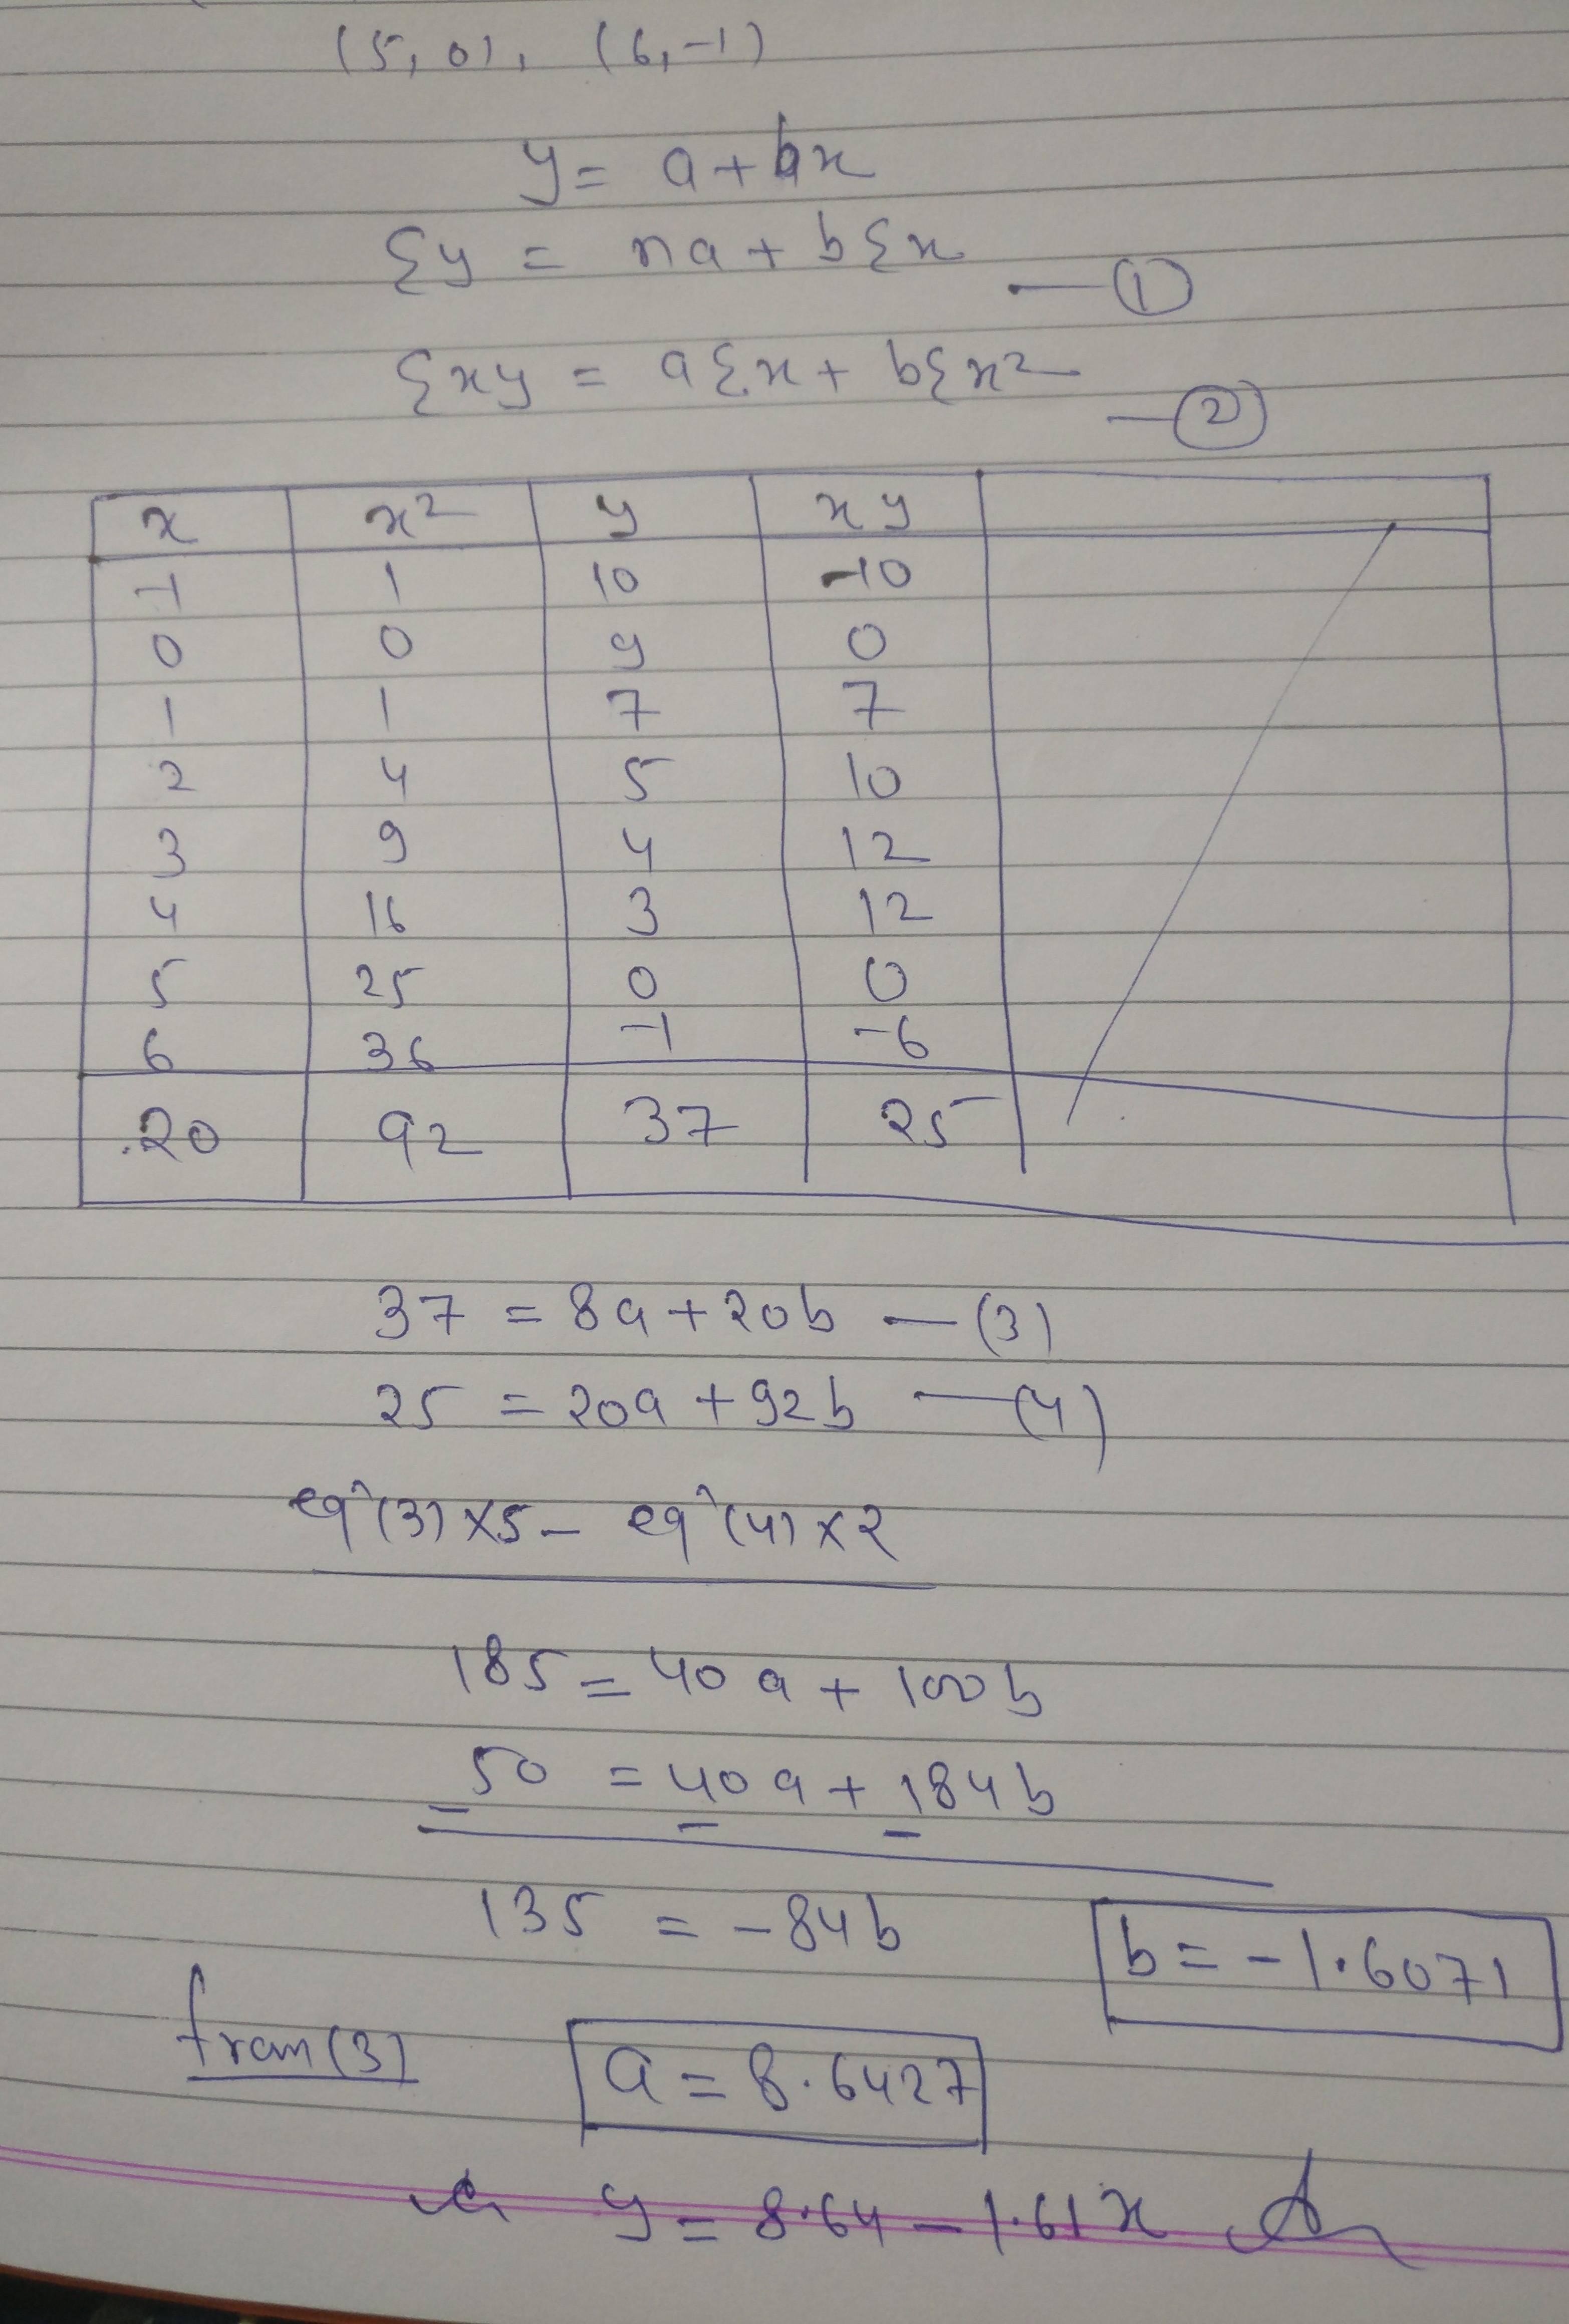 (5, 0), (6, -1)
y = a + bx
Σy = na + bΣx — (1)
Σxy = aΣx + bΣx² — (2)
x x² y xy
-1 1 10 -10
0 0 9 0
1 1 7 7
2 4 5 10
3 9 4 12
4 16 3 12
5 25 0 0
6 36 -1 -6
20 92 37 25
37 = 8a + 20b — (3)
25 = 20a + 92b — (4)
eqⁿ(3) x5 - eqⁿ(4) x 2
185 = 40a + 100b
50 = 40a + 184b
- - -
135 = -84b b = -1.6071
from (3) a = 8.6427
y = 8.64 - 1.61x